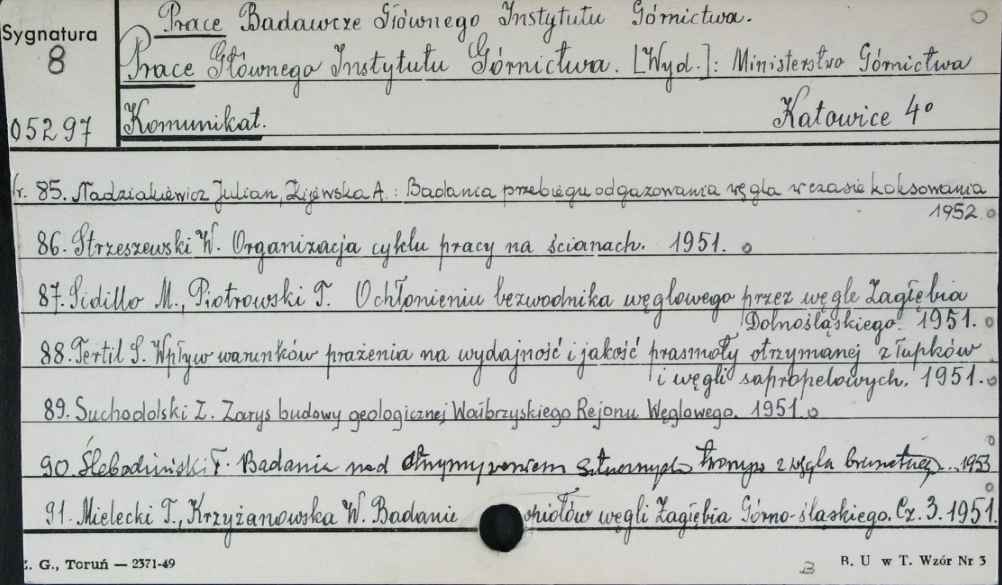 Prace Badawcze Głównego Instytutu Górnictwa.
Sygnatura
8
Prace Głównego Instytutu Górnictwa. [Wyd.]: Ministerstwo Górnictwa
05297
Komunikat. Katowice 4°
Nr. 85. Nadziakiewicz Julian, Zijewska A.: Badania przebiegu odgazowania węgla w czasie koksowania
1952.
86. Strzeszewski W. Organizacja cyklu pracy na ścianach. 1951.
87. Sidiłło M., Piotrowski T. Ochłonieniu bezwodnika węglowego przez węgle Zagłębia
Dolnośląskiego. 1951.
88. Tertil S. Wpływ warunków prażenia na wydajność i jakość prasmoły otrzymanej z łupków
i węgli sapropelowych. 1951.
89. Suchodolski Z. Zarys budowy geologicznej Wałbrzyskiego Rejonu Węglowego. 1951.
90. T. Badania nad otrzymywaniem sztucznych z węgla brunatnej... 1953
91. Mielecki T., Krzyżanowska W. Badanie opiołów węgli Zagłębia Górno-śląskiego. Cz. 3. 1951
Z. G., Toruń — 2371-49
B. U w T. Wzór Nr 3